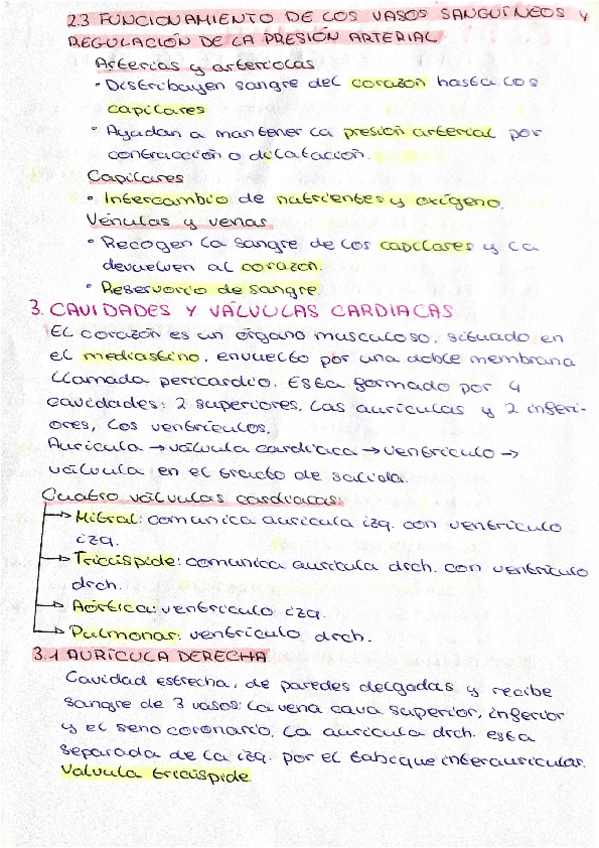 2.3 FUNCIONAMIENTO DE LOS VASOS SANGUÍNEOS Y
REGULACIÓN DE LA PRESIÓN ARTERIAL
Arterias y arteriolas
• Distribuyen sangre del corazón hasta los
capilares
• Ayudan a mantener la presión arterial por
contracción o dilatación.
Capilares
• Intercambio de nutrientes y oxígeno.
Vénulas y venas
• Recogen la sangre de los capilares y la
devuelven al corazón.
• Reservorio de sangre
3. CAVIDADES Y VÁLVULAS CARDIACAS
El corazón es un órgano musculoso, situado en
el mediastino, envuelto por una doble membrana
llamada pericardio. Esta formado por 4
cavidades: 2 superiores, las aurículas y 2 inferi-
ores, los ventrículos.
Aurícula → válvula cardíaca → ventrículo →
válvula en el tracto de salida.
Cuatro válvulas cardíacas:
→ Mitral: comunica aurícula izq. con ventrículo
izq.
→ Tricúspide: comunica aurícula drch. con ventrículo
drch.
→ Aórtica: ventrículo izq.
→ Pulmonar: ventrículo drch.
3.1 AURÍCULA DERECHA
Cavidad estrecha, de paredes delgadas y recibe
sangre de 3 vasos: la vena cava superior, inferior
y el seno coronario. La aurícula drch. esta
separada de la izq. por el tabique interauricular.
Valvula tricúspide